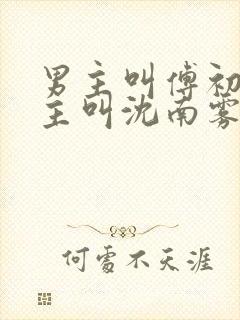 男主叫傅初
主叫沈南雾
何处不天涯